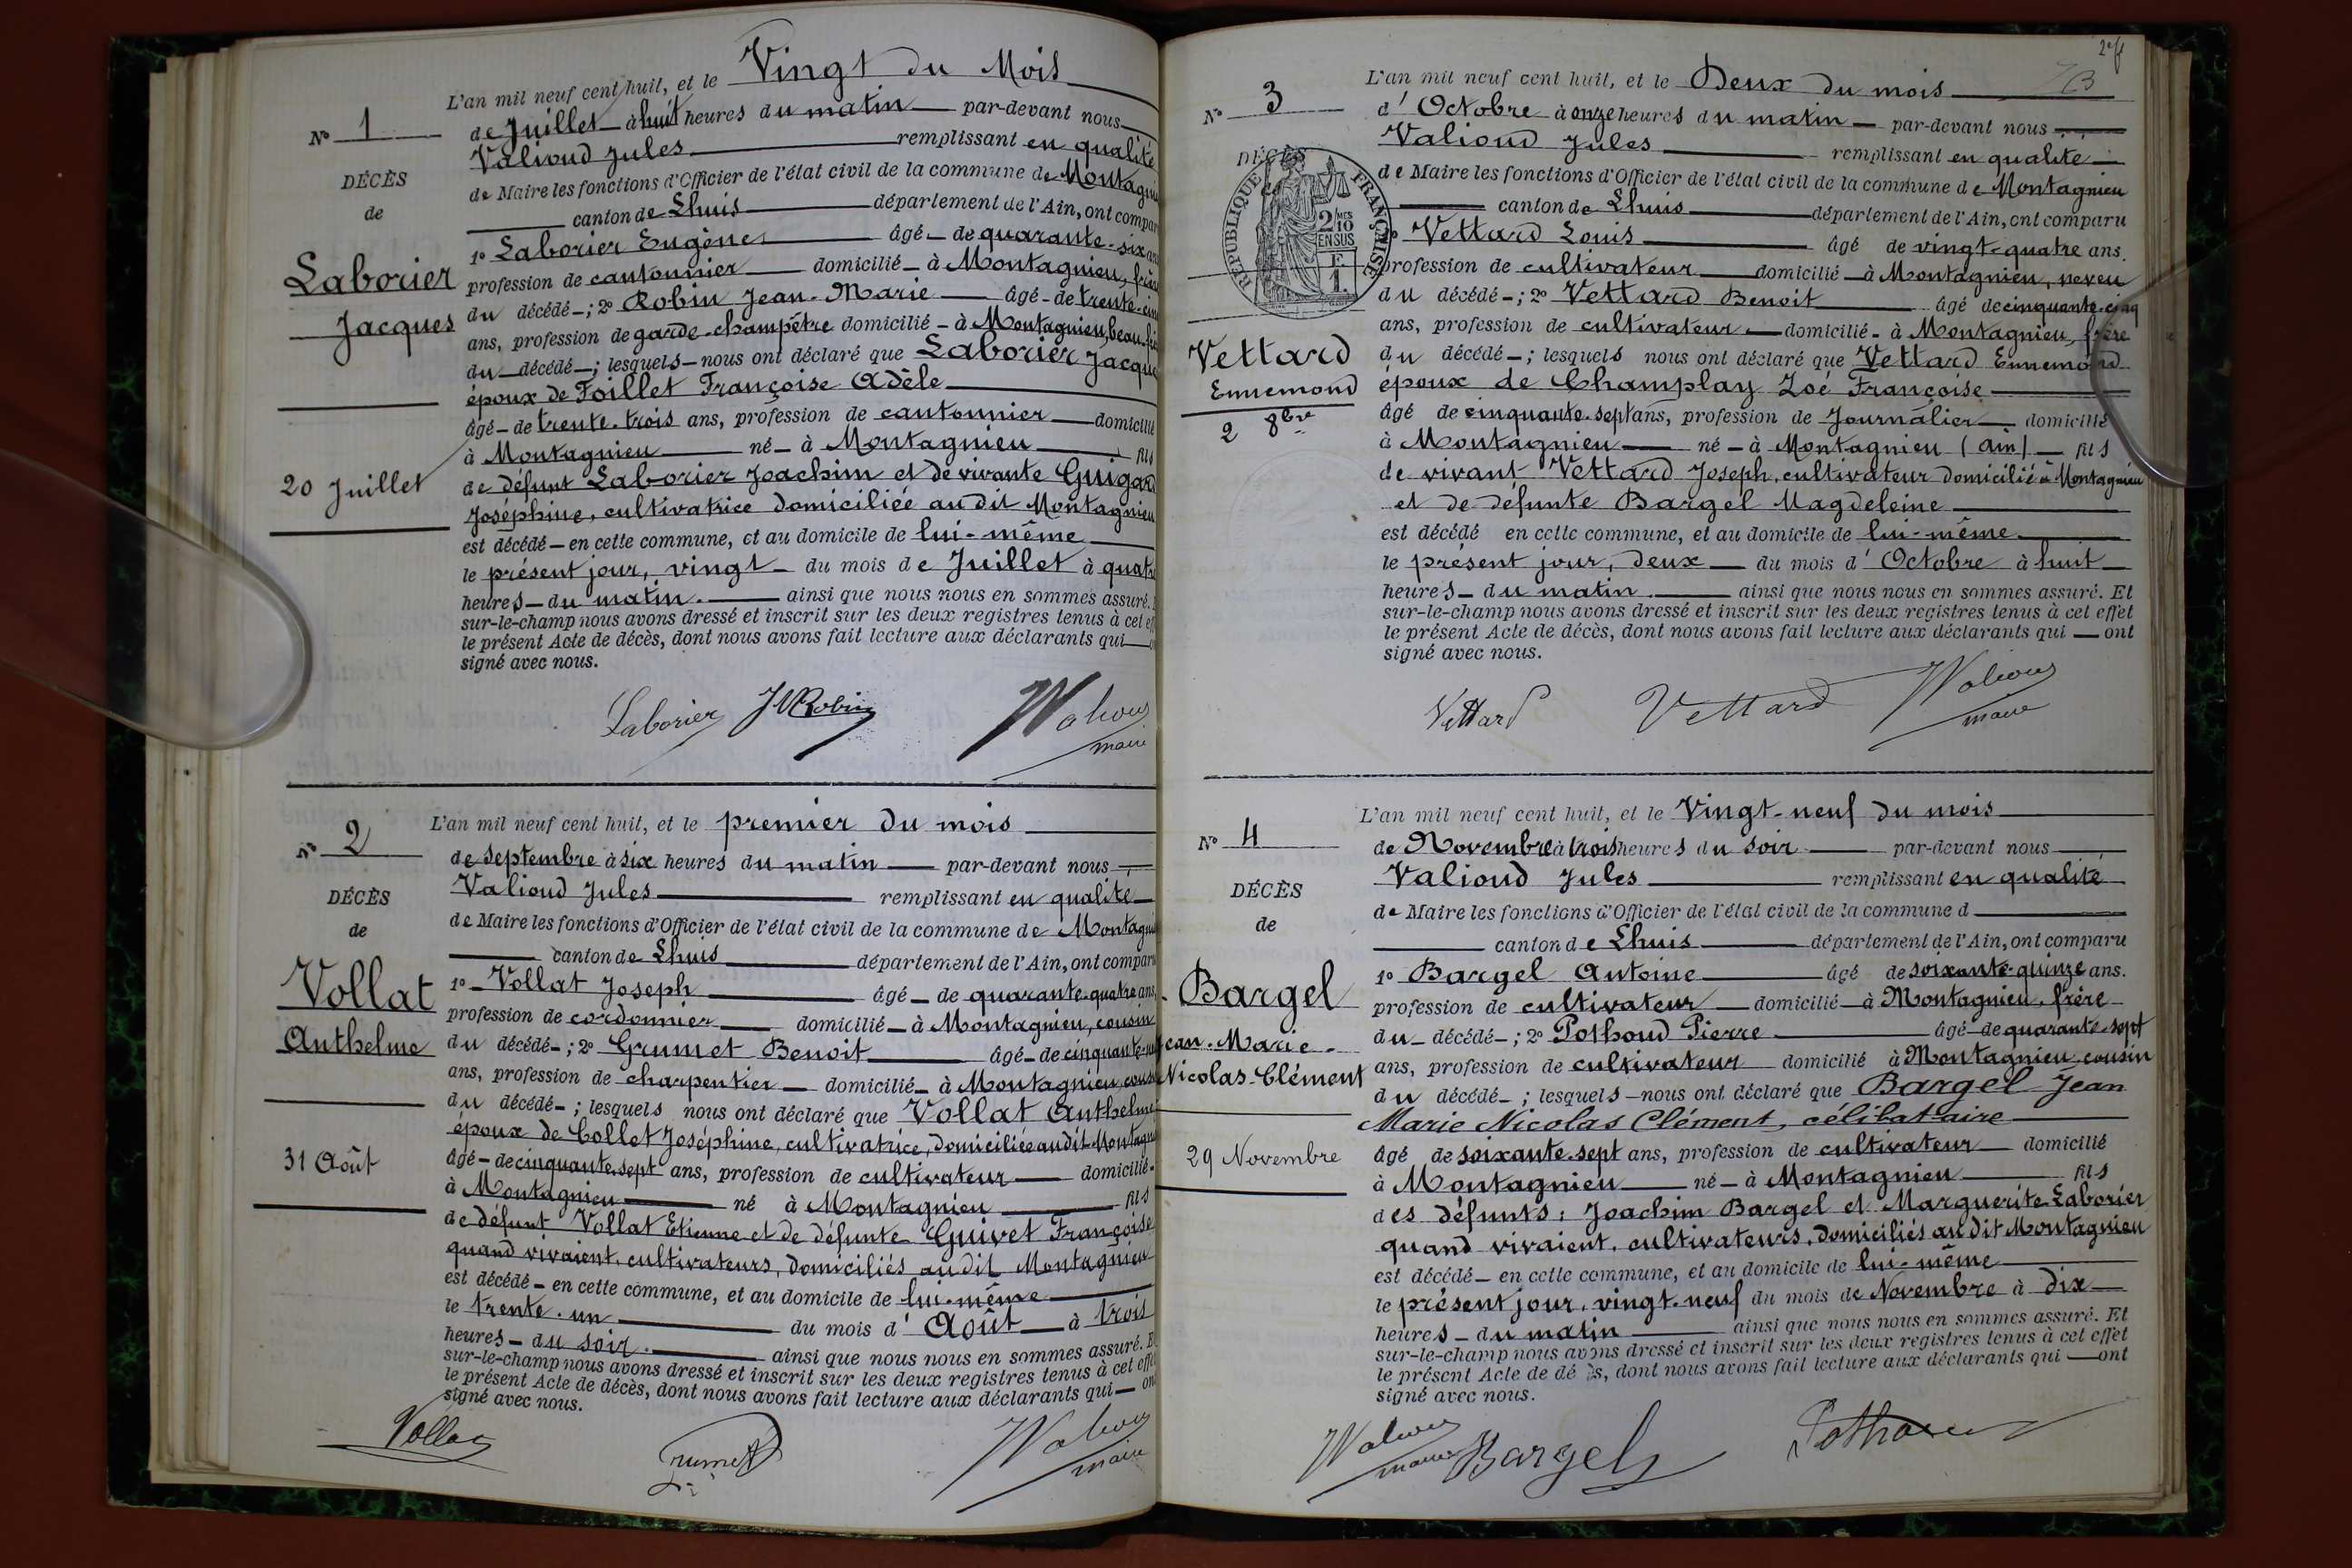 L'an mil neuf cent huit, et le Vingt du Mois
N° 1
de Juillet à huit heures du matin par-devant nous
Valioud Jules remplissant en qualité
DÉCÈS
de Maire les fonctions d'Officier de l'état civil de la commune de Montagnieu
de
canton de Lhuis département de l'Ain, ont compar
1° Laborier Eugène âgé de quarante-six ans
Laborier
profession de cantonnier domicilié à Montagnieu, frère
Jacques
du décédé ; 2° Robin Jean-Marie âgé de trente-cinq
ans, profession de garde-champêtre domicilié à Montagnieu, beau-fr
du décédé ; lesquels nous ont déclaré que Laborier Jacque
époux de Foillet Françoise Adèle
âgé de trente-trois ans, profession de cantonnier domicilié
à Montagnieu né à Montagnieu fils
20 Juillet
de défunt Laborier Joachim et de vivante Guigard
Joséphine, cultivatrice domiciliée audit Montagnieu
est décédé en cette commune, et au domicile de lui-même
le présent jour, vingt du mois de Juillet à quatre
heures du matin. ainsi que nous nous en sommes assuré.
sur-le-champ nous avons dressé et inscrit sur les deux registres tenus à cet ef
le présent Acte de décès, dont nous avons fait lecture aux déclarants qui
signé avec nous.
Laborier JM Robin Valioud
maire
L'an mil neuf cent huit, et le premier du mois
N° 2
de septembre à six heures du matin par-devant nous
Valioud Jules remplissant en qualité
DÉCÈS
de Maire les fonctions d'Officier de l'état civil de la commune de Montagni
de
canton de Lhuis département de l'Ain, ont comparu
Vollat
1° Vollat Joseph âgé de quarante-quatre ans,
profession de cordonnier domicilié à Montagnieu, cousin
Anthelme
du décédé ; 2° Grumet Benoit âgé de cinquante
ans, profession de charpentier domicilié à Montagnieu, cous
du décédé ; lesquels nous ont déclaré que Vollat Anthelme
époux de Collet Joséphine, cultivatrice, domiciliée audit Montagni
31 Août
âgé de cinquante-sept ans, profession de cultivateur domicilié
à Montagnieu né à Montagnieu fils
de défunt Vollat Etienne et de défunte Guivet Françoise
quand vivaient, cultivateurs, domiciliés audit Montagnieu
est décédé en cette commune, et au domicile de lui-même
le trente-un du mois d'Août à trois
heures du soir. ainsi que nous nous en sommes assuré. E
sur-le-champ nous avons dressé et inscrit sur les deux registres tenus à cet effe
le présent Acte de décès, dont nous avons fait lecture aux déclarants qui on
signé avec nous.
Vollat Grumet Valioud
maire
L'an mil neuf cent huit, et le Deux du mois
N° 3
d'Octobre à onze heures du matin par-devant nous
Valioud Jules remplissant en qualité
DÉCÈS
RÉPUBLIQUE FRANÇAISE
2/10MES
EN SUS
de Maire les fonctions d'Officier de l'état civil de la commune de Montagnieu
canton de Lhuis département de l'Ain, ont comparu
Vettard Louis âgé de vingt-quatre ans.
profession de cultivateur domicilié à Montagnieu, neveu
du décédé ; 2° Vettard Benoit âgé de cinquante-cinq
ans, profession de cultivateur domicilié à Montagnieu, frère
Vettard
du décédé ; lesquels nous ont déclaré que Vettard Ennemond
Ennemond
époux de Champlay Zoé Françoise
2 8bre
âgé de cinquante-sept ans, profession de Journalier domicilié
à Montagnieu né à Montagnieu (ain) fils
de vivant Vettard Joseph, cultivateur domicilié à Montagnieu
et de défunte Bargel Magdeleine
est décédé en cette commune, et au domicile de lui-même
le présent jour, deux du mois d'Octobre à huit
heures du matin. ainsi que nous nous en sommes assuré. Et
sur-le-champ nous avons dressé et inscrit sur les deux registres tenus à cet effet
le présent Acte de décès, dont nous avons fait lecture aux déclarants qui ont
signé avec nous.
Vettard Vettard Valioud
maire
L'an mil neuf cent huit, et le Vingt-neuf du mois
N° 4
de Novembre à trois heures du soir par-devant nous
Valioud Jules remplissant en qualité
DÉCÈS
de Maire les fonctions d'Officier de l'état civil de la commune d
de
canton de Lhuis département de l'Ain, ont comparu
1° Bargel Antoine âgé de soixante-quinze ans.
Bargel
profession de cultivateur domicilié à Montagnieu, frère
Jean-Marie
du décédé ; 2° Pothoud Pierre âgé de quarante-sept
Nicolas-Clément
ans, profession de cultivateur domicilié à Montagnieu cousin
du décédé ; lesquels nous ont déclaré que Bargel Jean
Marie Nicolas Clément, célibataire
29 Novembre
âgé de soixante-sept ans, profession de cultivateur domicilié
à Montagnieu né à Montagnieu fils
des défunts : Joachim Bargel et Marguerite Laborier
quand vivaient, cultivateurs, domiciliés audit Montagnieu
est décédé en cette commune, et au domicile de lui-même
le présent jour, vingt-neuf du mois de Novembre à dix
heures du matin ainsi que nous nous en sommes assuré. Et
sur-le-champ nous avons dressé et inscrit sur les deux registres tenus à cet effet
le présent Acte de décès, dont nous avons fait lecture aux déclarants qui ont
signé avec nous.
Valioud
maire Bargel Pothoud